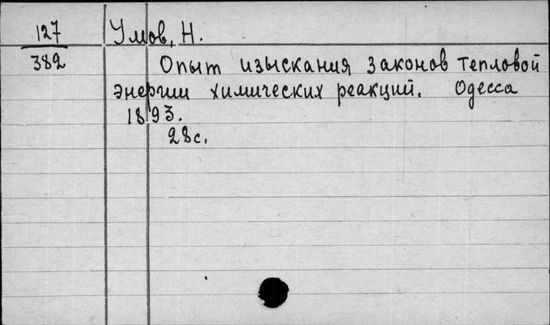 127 Умов, Н.
382 Опыт изыскания законов тепловой
энергии химических реакций. Одесса
1893.
28 с.